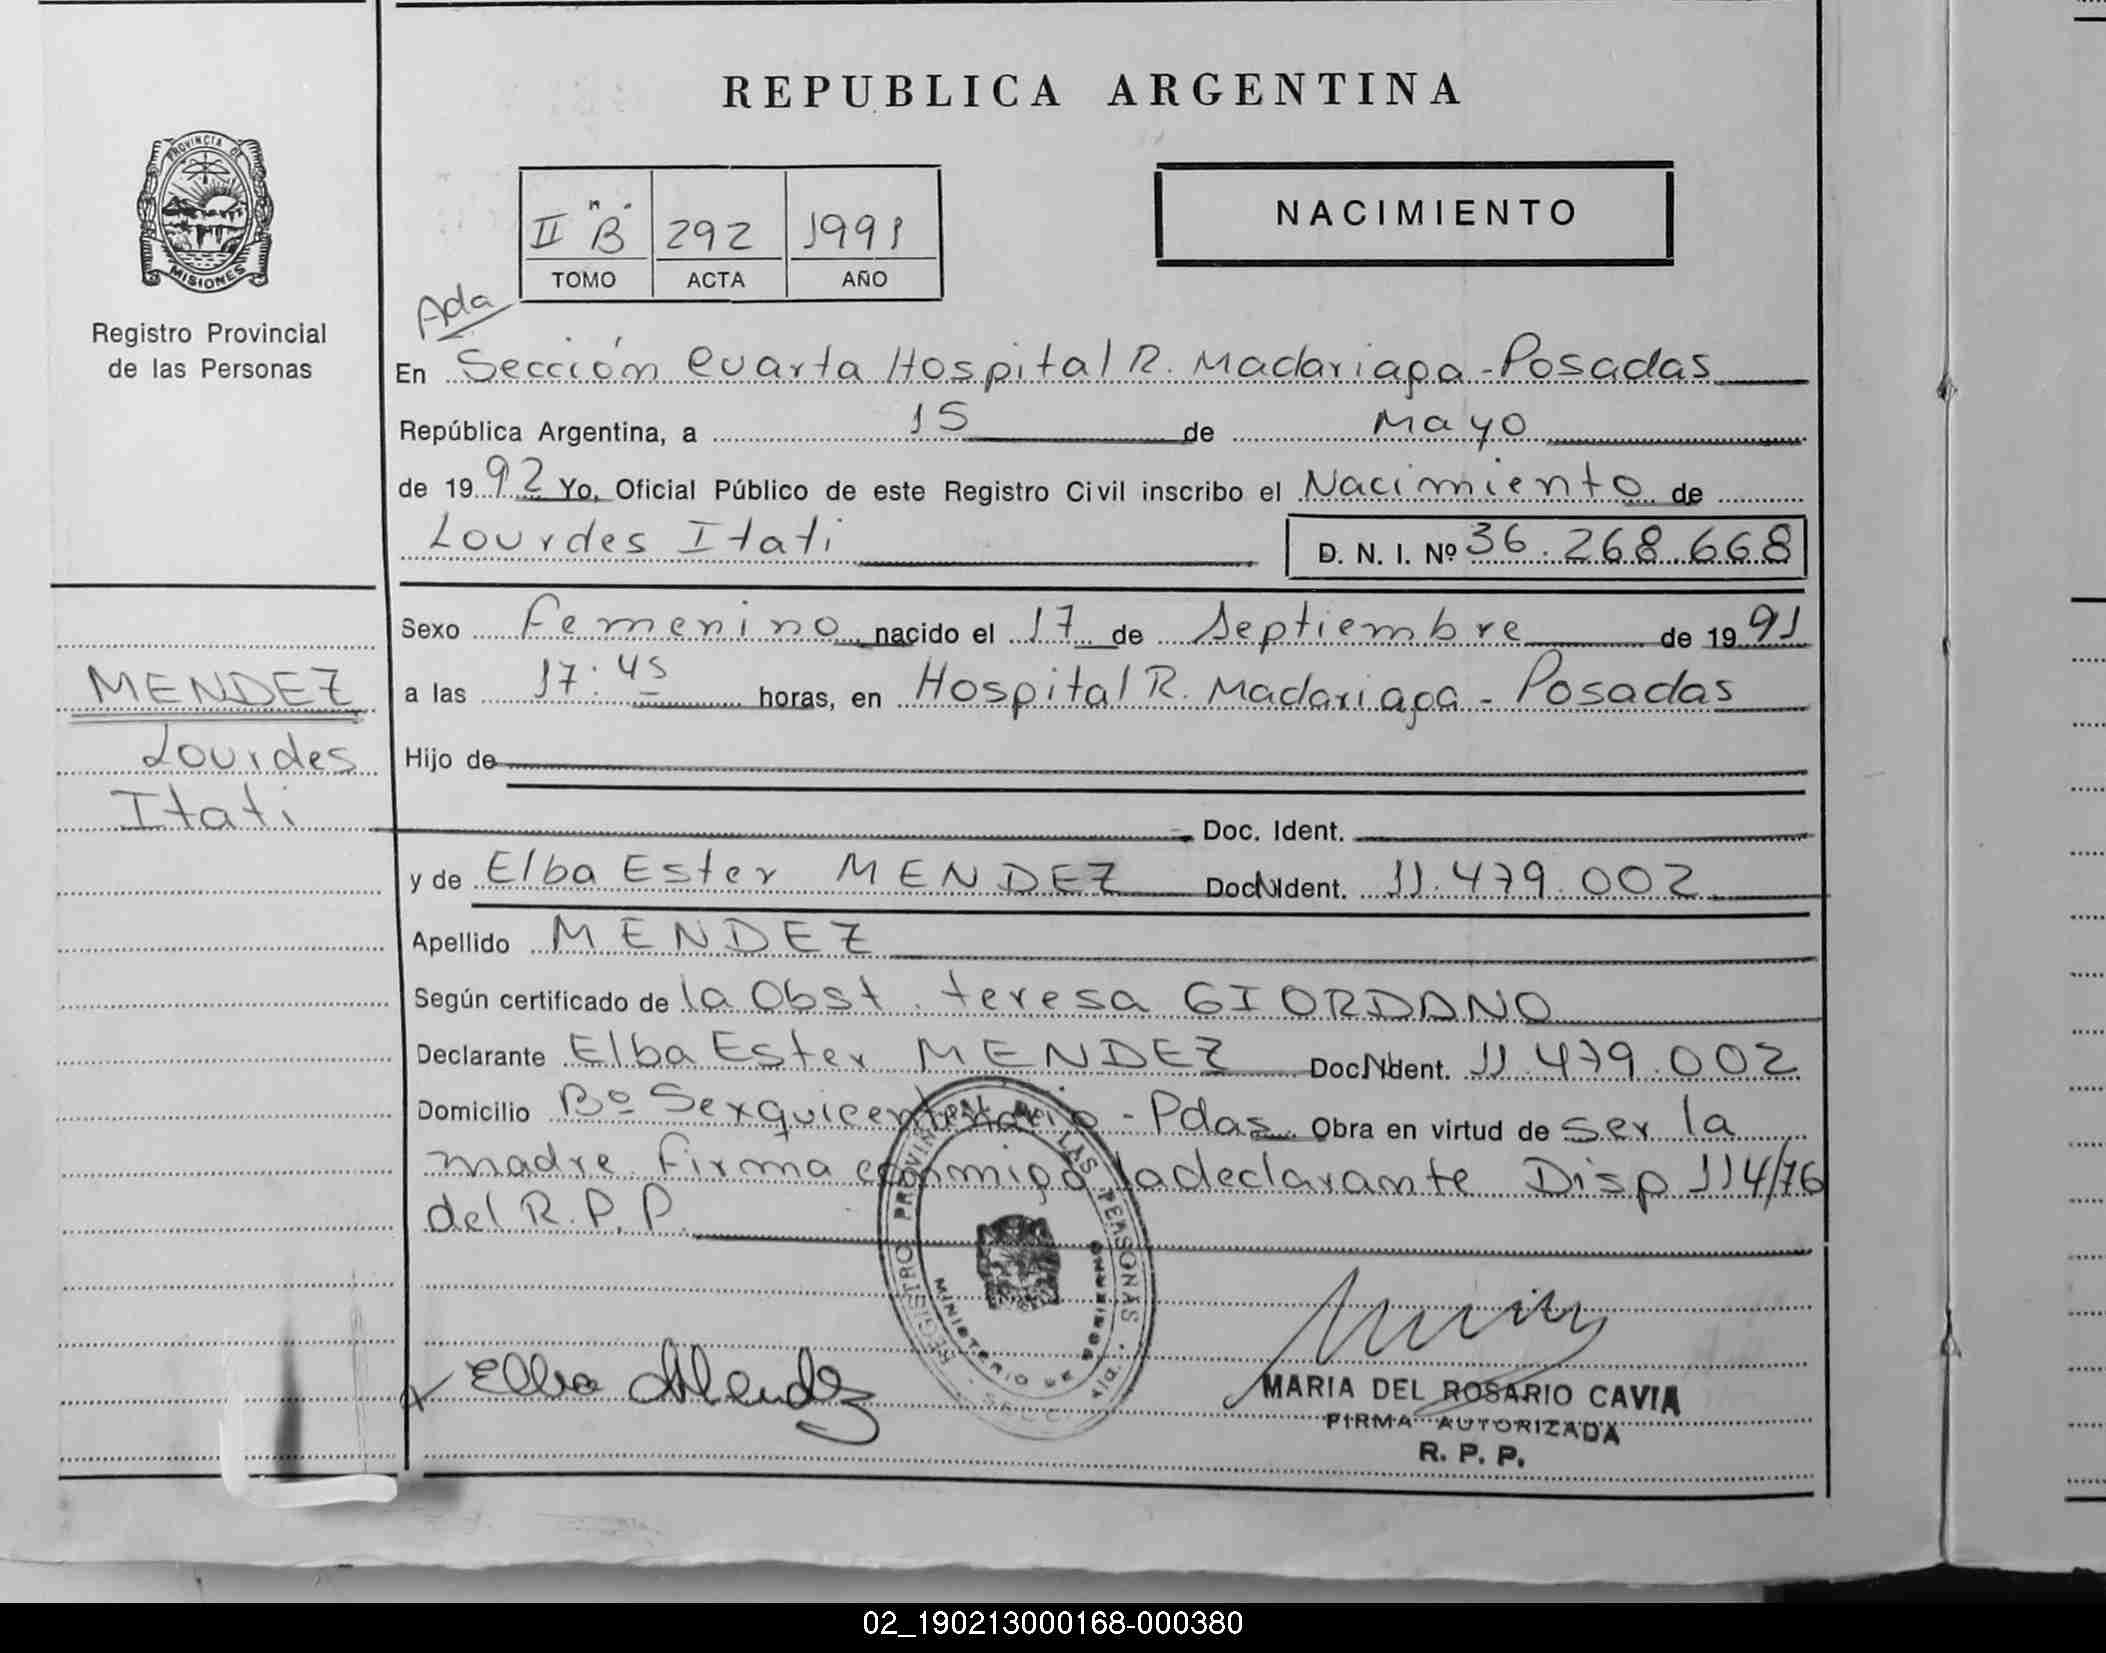 REPUBLICA ARGENTINA
PROVINCIA DE
MISIONES
Registro Provincial
de las Personas
II "B"
292
1991
TOMO
ACTA
AÑO
NACIMIENTO
Ada
En Sección Cuarta Hospital R. Madariaga - Posadas
República Argentina, a 15 de Mayo
de 1992 Yo, Oficial Público de este Registro Civil inscribo el Nacimiento de
Lourdes Itati
D. N. I. Nº 36.268.668
Sexo Femenino nacido el 17 de Septiembre de 1991
MENDEZ
Lourdes
Itati
a las 17:45 horas, en Hospital R. Madariaga - Posadas
Hijo de
Doc. Ident.
y de Elba Ester MENDEZ Doc. Ident. 11.479.002
Apellido MENDEZ
Según certificado de la Obst. teresa GIORDANO
Declarante Elba Ester MENDEZ Doc. Ident. 11.479.002
Domicilio Bº Sexquicentenario - Pdas. Obra en virtud de ser la
madre. Firma conmigo la declarante Disp 114/76
del R.P.P.
REGISTRO PROVINCIAL DE LAS PERSONAS
MINISTERIO DE GOBIERNO
Elba Mendez
MARIA DEL ROSARIO CAVIA
FIRMA AUTORIZADA
R. P. P.
02_190213000168-000380